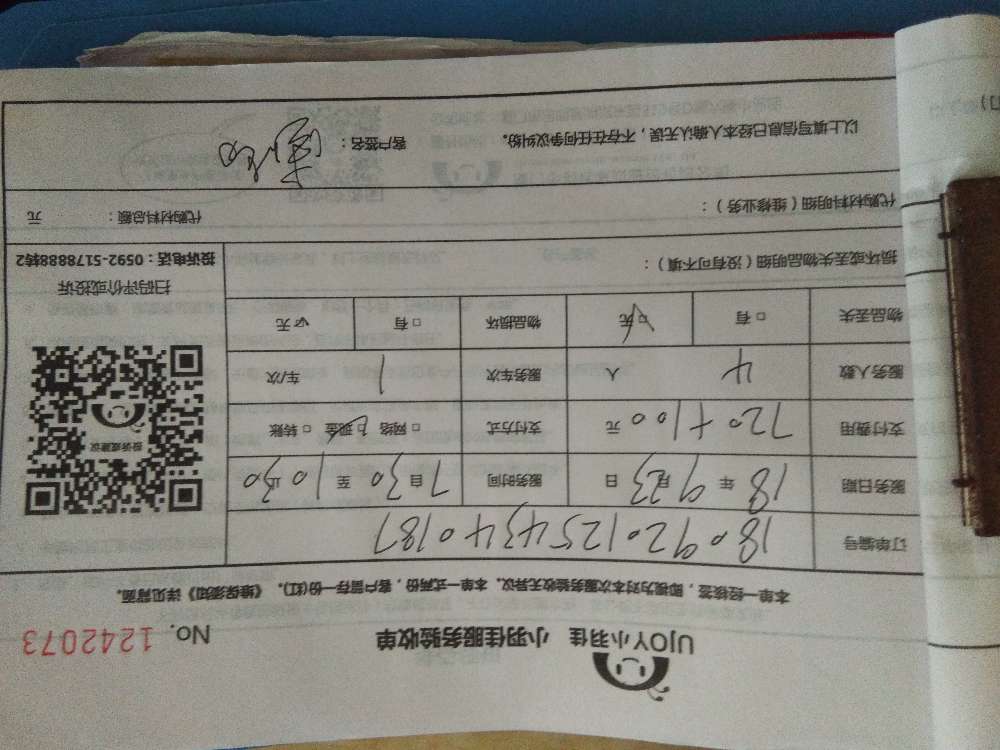 UJOY小羽佳 小羽佳服务验收单 No. 1242073
本单一经核签，即视为对本次服务验收无异议。本单一式两份，客户留存一份(红)。《维保须知》详见背面。
订单编号 1809201254340187
服务日期 18 年 9 月 23 日 服务时间 7 自 30 至 10 止 30
支付费用 720+100 元 支付方式 □ 网络 □ 现金 □ 转账
服务人数 4 人 服务车次 1 车/次
物品丢失 □ 有 □ 无 物品损坏 □ 有 □ 无
损坏或丢失物品明细（没有可不填）：
投诉或建议
扫码评价或投诉
投诉电话：0592-5178888转2
代购材料明细（维修业务）： 代购材料总额： 元
以上填写信息已经本人确认无误，不存在任何争议纠纷。 客户签名：